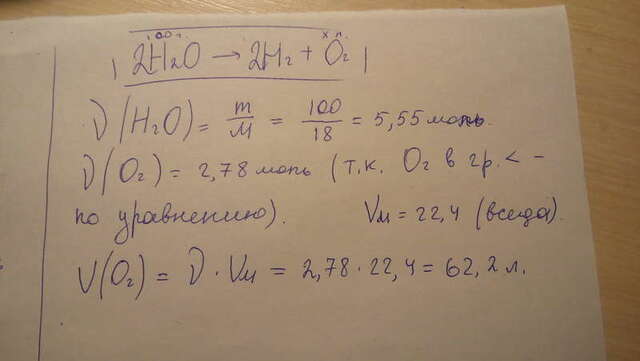 100г. х л.
2H₂O → 2H₂ + O₂
ν(H₂O) = m/M = 100/18 = 5,55 моль.
ν(O₂) = 2,78 моль (т.к. O₂ в 2р. < -
по уравнению). Vм = 22,4 (всегда).
V(O₂) = ν · Vм = 2,78 · 22,4 = 62,2 л.